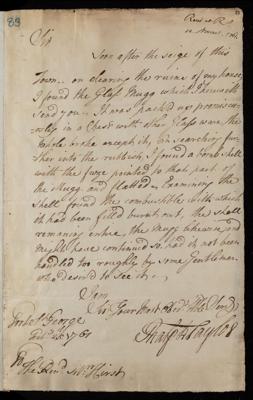 89
8
Read at R S
Sir
Soon after the seige of this
Town, on clearing the ruins of my house,
I found the Glass Mugg which I herewith
send you. It was pack'd up promiscu
ously in a Chest with other Glass ware the
whole broke except it, On searching fur
ther into the rubbish, I found a bomb shell
with the fuze pointed to that part of
the Mugg and flatted. Examining the
shell found the combustible with which
it had been filled burnt out, the shell
remaining entire, the mugg likewise, and
might have continued so had it not been
handled too roughly by some Gentlemen
who desir'd to see it.
I am
Sir Your Most Obedt. Hble Servt.
Taylor
Fort St. George
1761
To
The Revd. Mr. Hirst